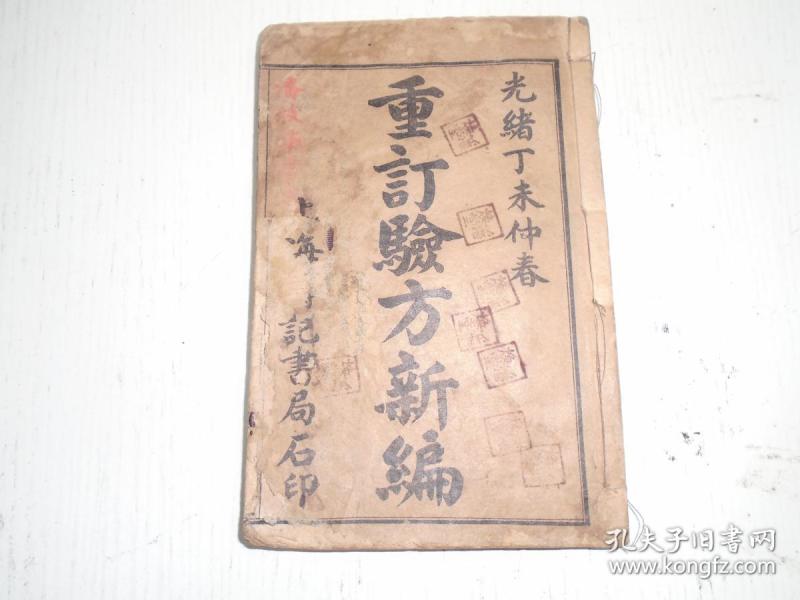 光緒丁未仲春
重訂驗方新編
上海 記書局石印
孔夫子旧书网
www.kongfz.com